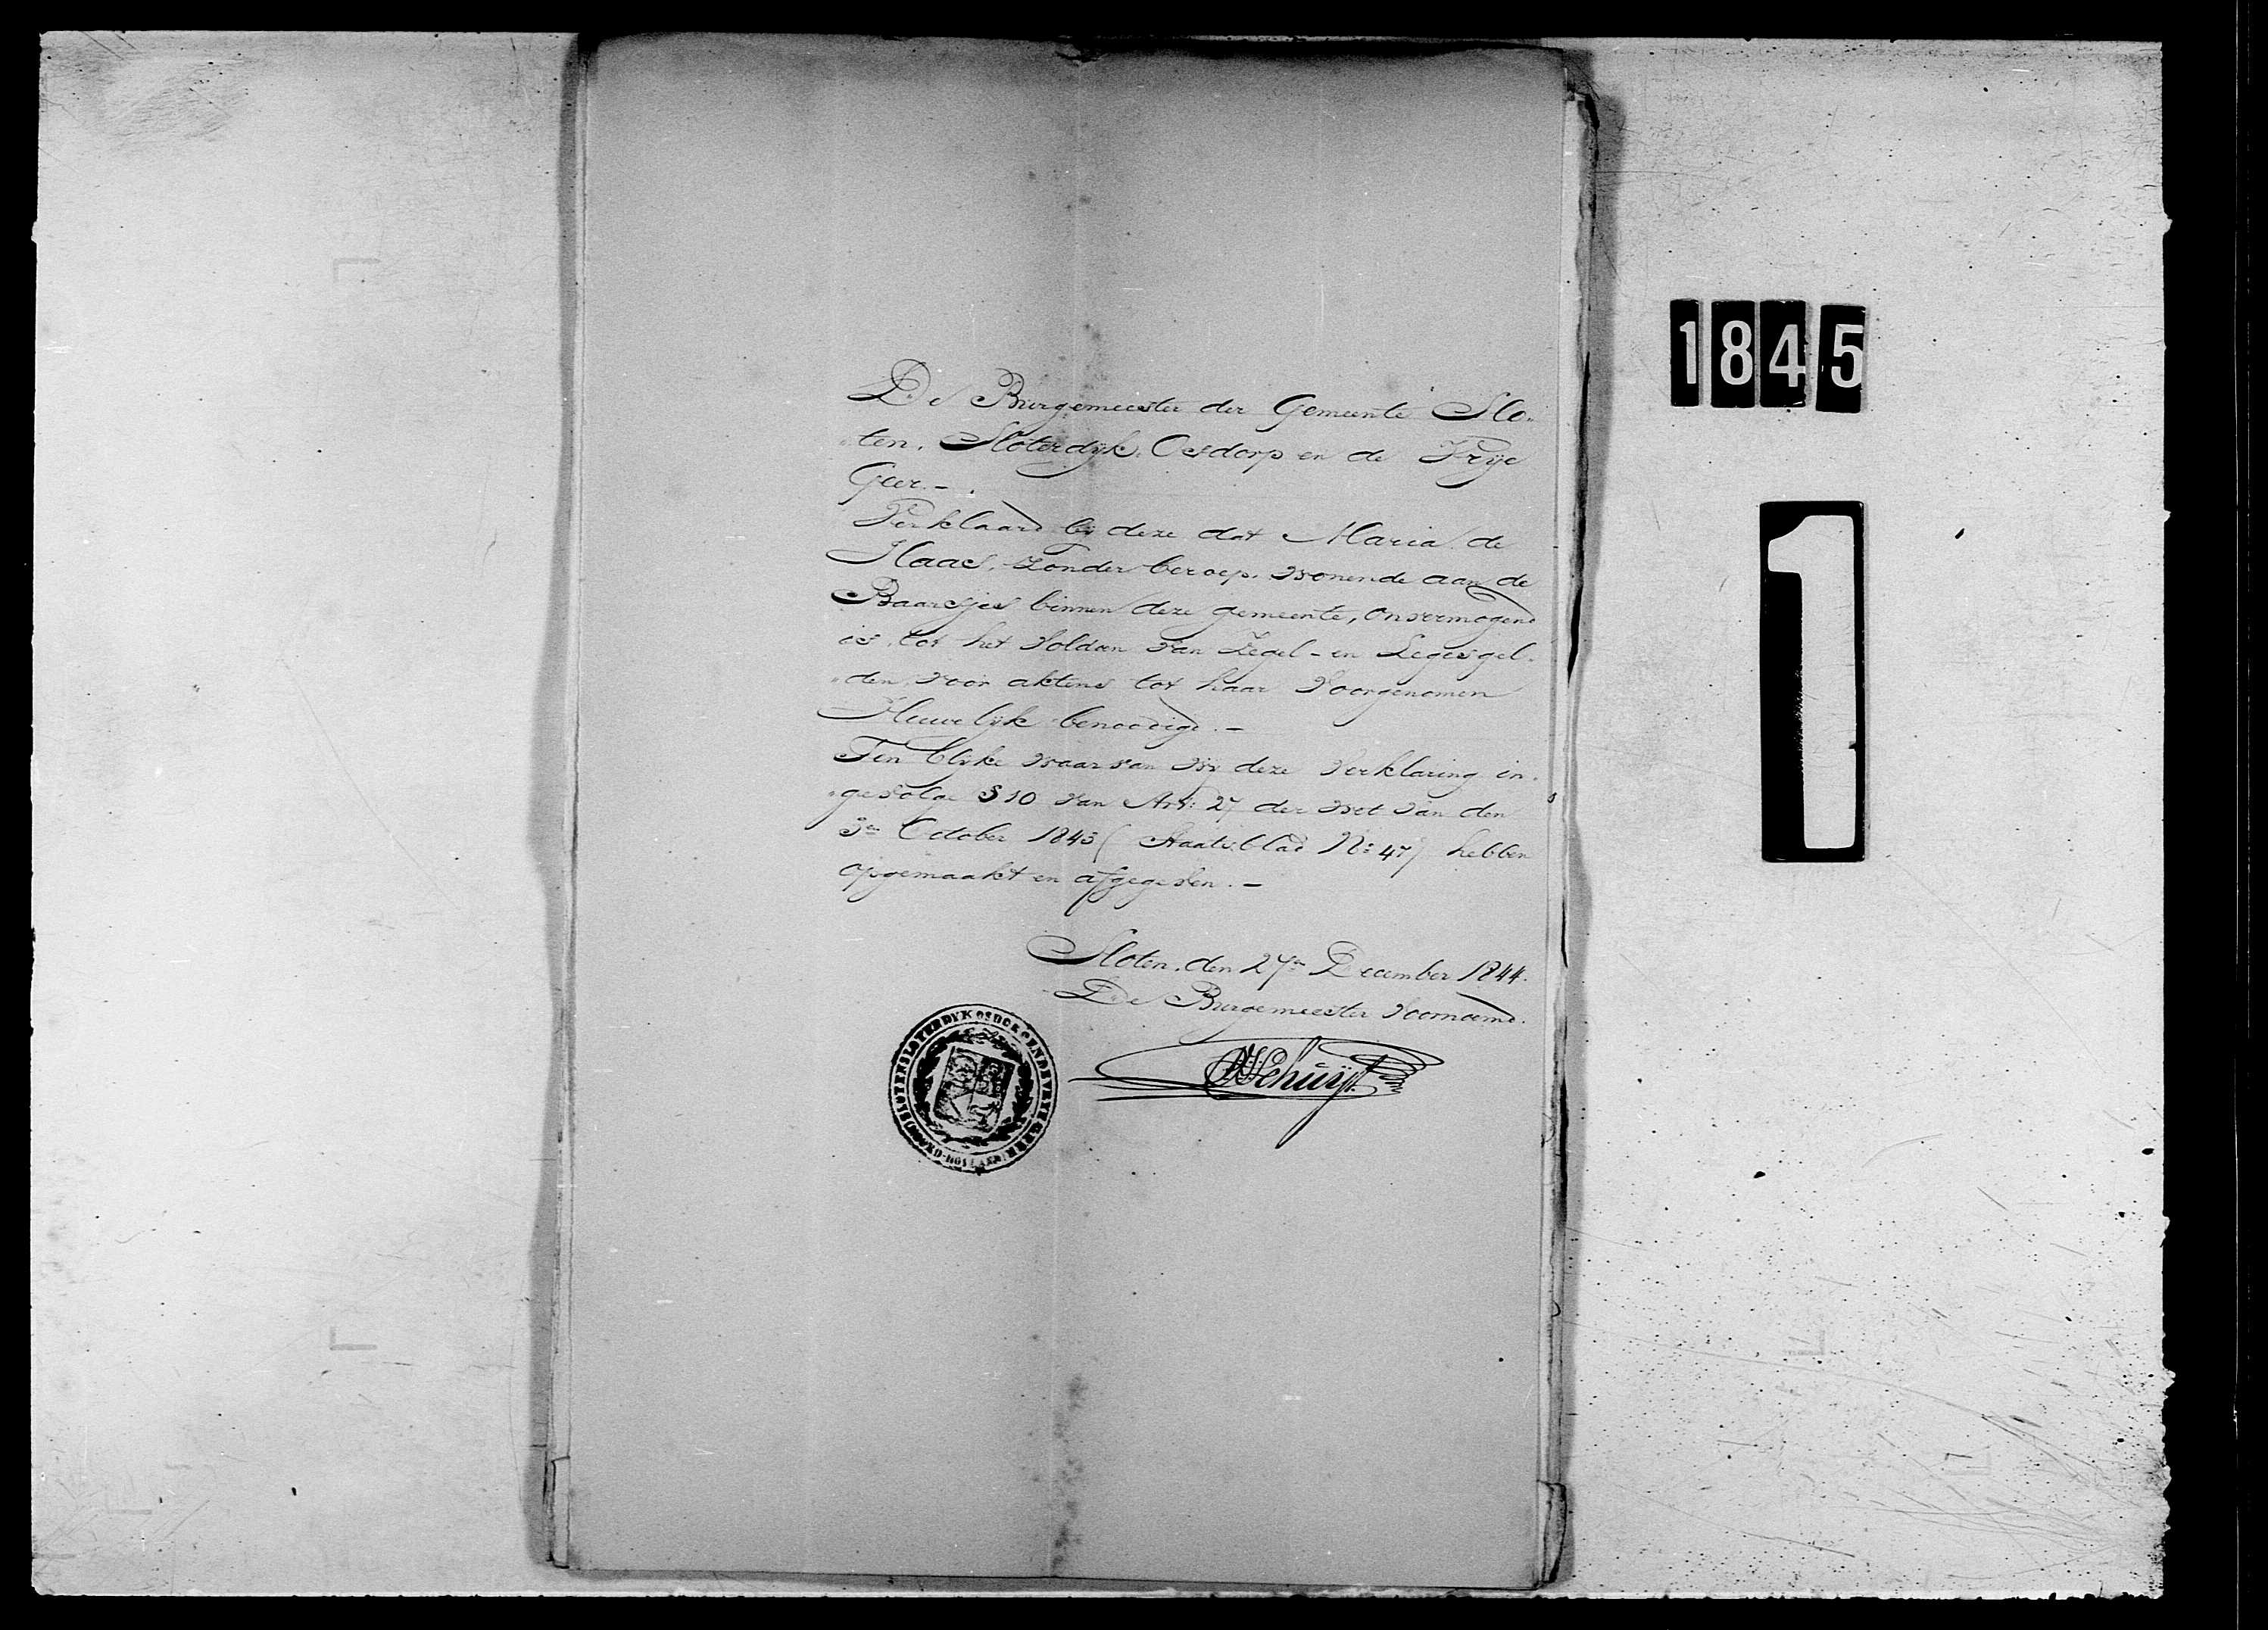 De Burgemeester der Gemeente Slo-
"ten, Sloterdijk, Osdorp en de Vrije
Geer. -
Verklaard bij deze dat Maria de
Haas, zonder beroep, wonende aan de
Baarsjes binnen deze gemeente, onvermogend
is, tot het voldoen van Zegel- en Legesgel-
"den voor aktens tot haar voorgenomen
Huwelijk benoodigd. -
Ten blijke waarvan wij deze verklaring in-
"gevolge § 10 van Art: 27 der wet van den
3en October 1843 (Staatsblad No 47) hebben
opgemaakt en afgegeven. -
Sloten, den 27en December 1844.
De Burgemeester voornoemd.
Schuijt
SLOTEN SLOTERDYK OSDORP EN DE VRYE GEER (NOORD-HOLLAND)
1845
1